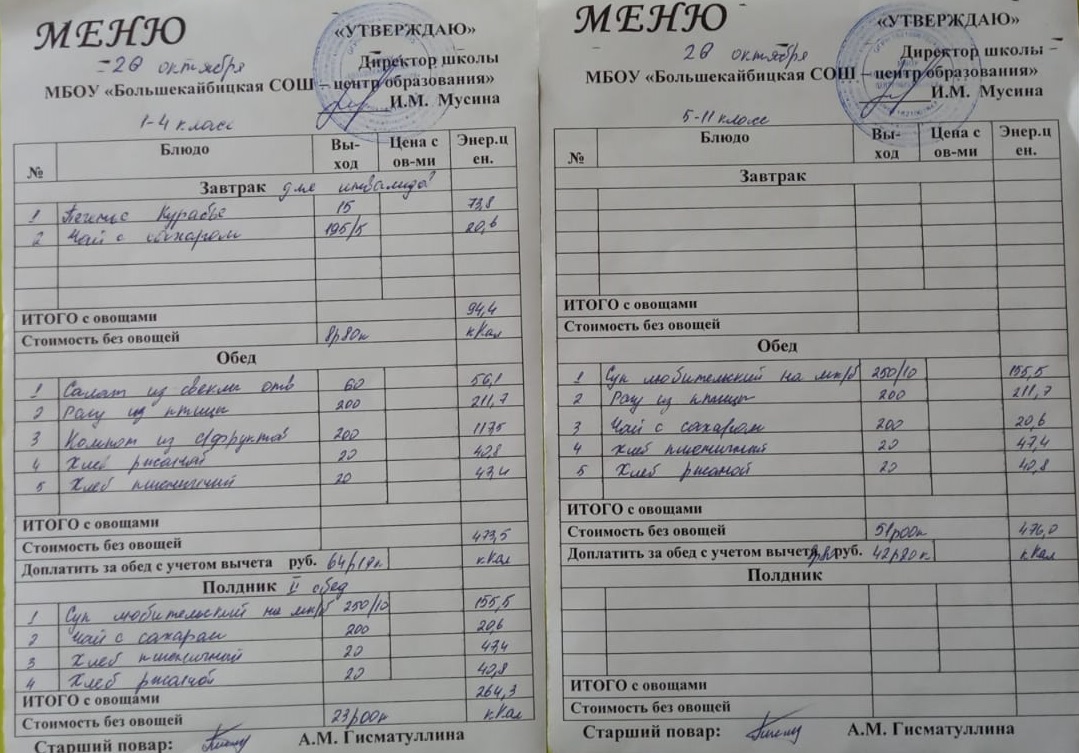 МЕНЮ
«УТВЕРЖДАЮ»
20 октября
Директор школы
МБОУ «Большекайбицкая СОШ – центр образования»
И.М. Мусина
1-4 класс
№ Блюдо Вы-ход Цена с ов-ми Энер.ц ен.
Завтрак для инвалидов
1 Печенье Курабье 15 73,8
2 Чай с сахаром 195/5 20,6
ИТОГО с овощами 94,4
Стоимость без овощей 8р80к кКал
Обед
1 Салат из свеклы отв 60 56,1
2 Рагу из птицы 200 211,7
3 Компот из с/фруктов 200 117,5
4 Хлеб ржаной 20 40,8
5 Хлеб пшеничный 20 47,4
ИТОГО с овощами
Стоимость без овощей 473,5
Доплатить за обед с учетом вычета руб. кКал
Полдник II обед
1 Суп любительский на мк/б 250/10 155,5
2 Чай с сахаром 200 20,6
3 Хлеб пшеничный 20 47,4
4 Хлеб ржаной 20 40,8
ИТОГО с овощами 264,3
Стоимость без овощей 23р00к кКал
Старший повар: А.М. Гисматуллина
МЕНЮ
«УТВЕРЖДАЮ»
20 октября
Директор школы
МБОУ «Большекайбицкая СОШ – центр образования»
И.М. Мусина
5-11 класс
№ Блюдо Вы-ход Цена с ов-ми Энер.ц ен.
Завтрак
ИТОГО с овощами
Стоимость без овощей
Обед
1 Суп любительский на мк/б 250/10 155,5
2 Рагу из птицы 200 211,7
3 Чай с сахаром 200 20,6
4 Хлеб пшеничный 20 47,4
5 Хлеб ржаной 20 40,8
ИТОГО с овощами
Стоимость без овощей 51р00к 476,0
Доплатить за обед с учетом вычета руб. 42р20к кКал
Полдник
ИТОГО с овощами
Стоимость без овощей
Старший повар: А.М. Гисматуллина